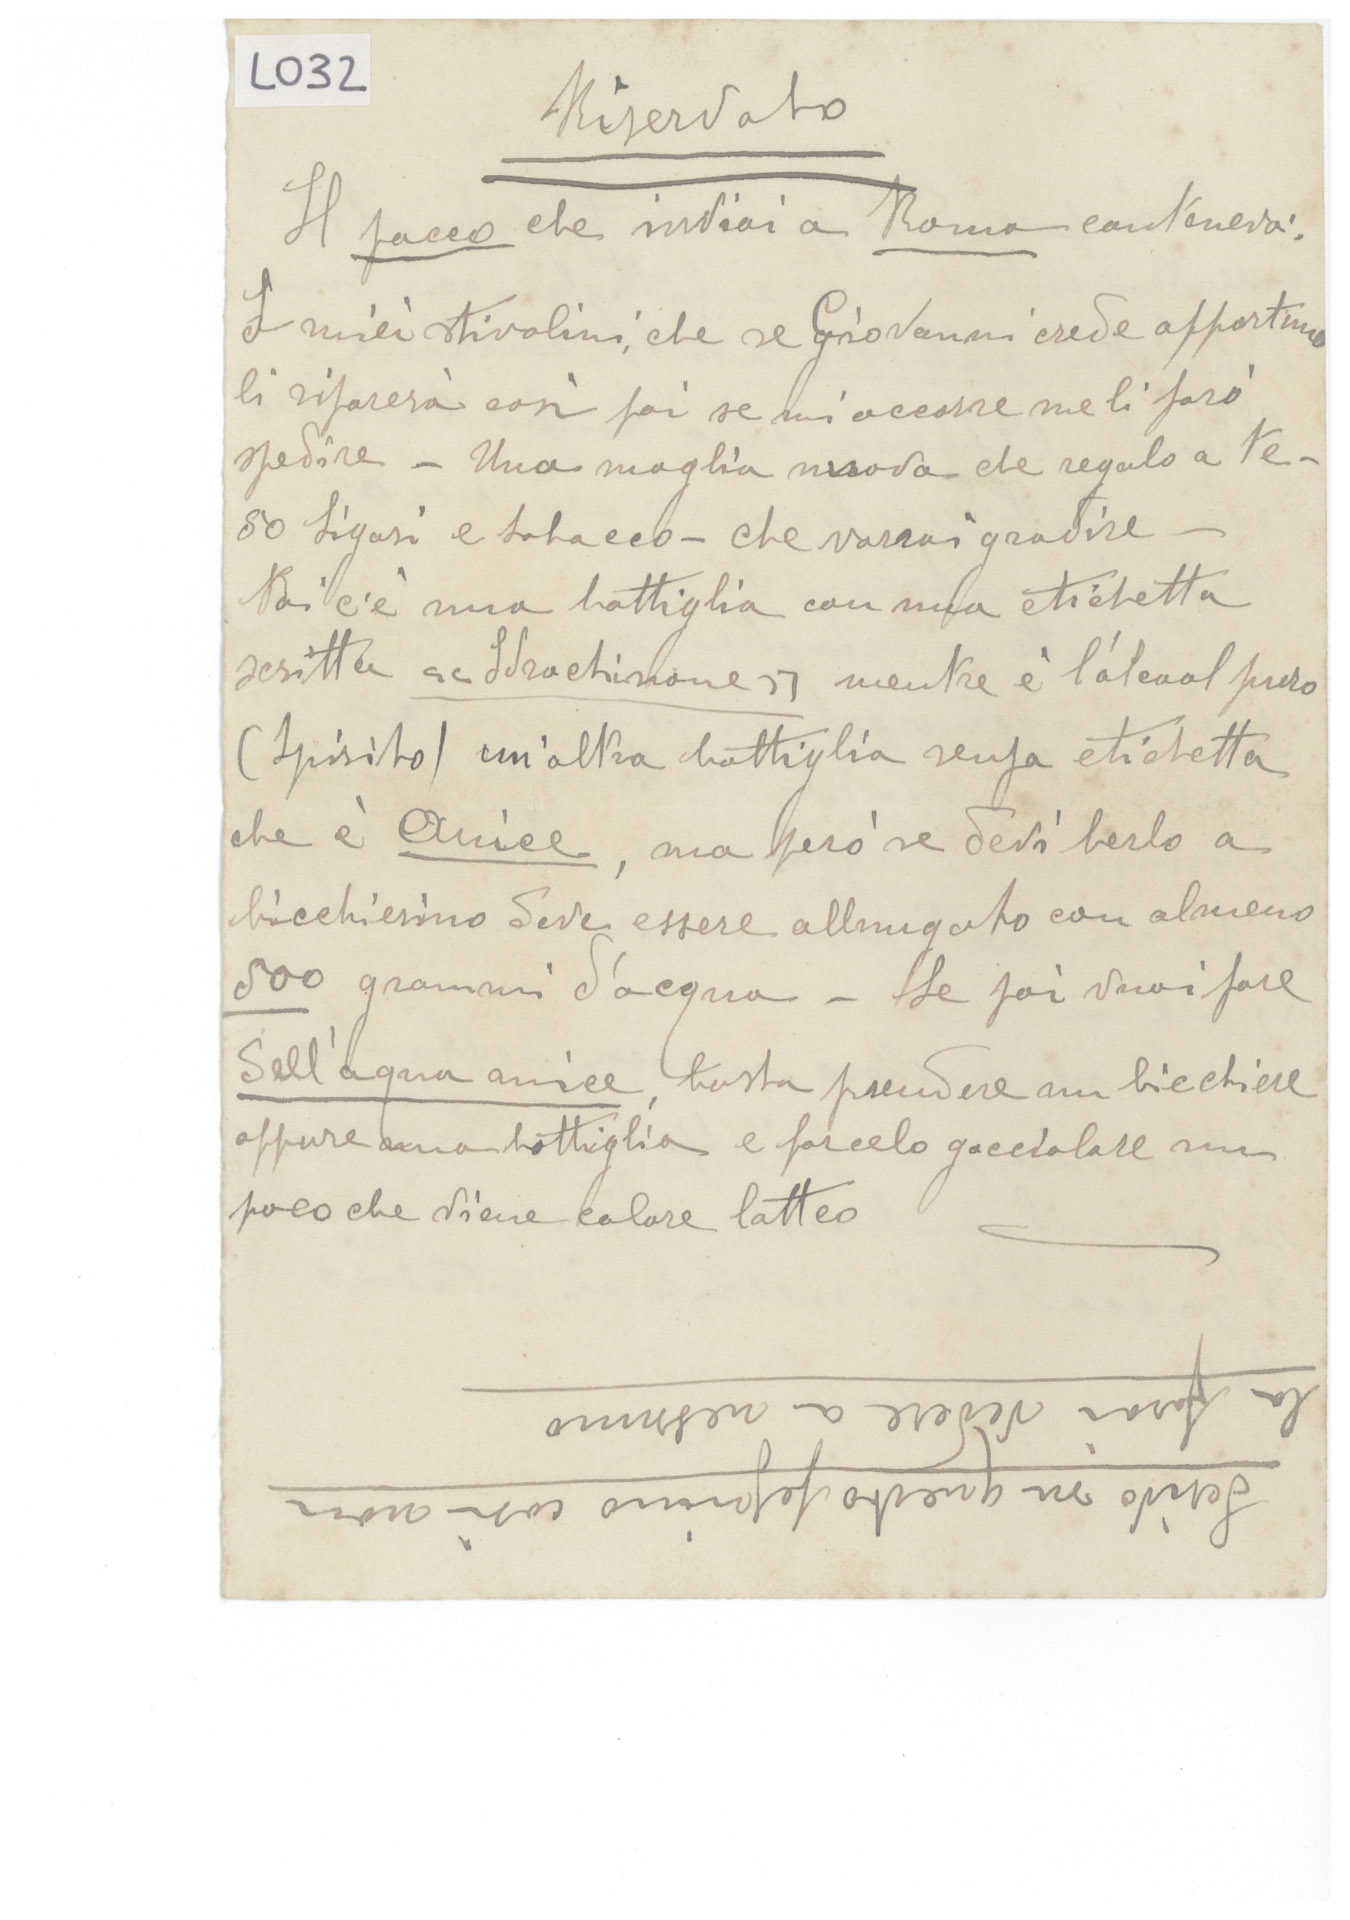 L032
Riservato
Il pacco che inviai a Roma conteneva:
I miei stivolini, che se Giovanni crede opportuno
li riparerà così poi se mi occorre me li farò
spedire – Una maglia nuova che regalo a te –
50 Sigari e tabacco – che vorrai gradire –
Poi c'è una bottiglia con una etichetta
scritta "Idrochinone" mentre è l'alcool puro
(Spirito) un'altra bottiglia senza etichetta
che è Anice, ma però se devi berlo a
bicchierino deve essere allungato con almeno
500 grammi d'acqua – Se poi vuoi fare
dell'aqua anice, basta prendere un bicchiere
oppure una bottiglia e farcelo gocciolare un
poco che viene colore latteo
Scrivo in questo foglino così non
la farai vedere a nessuno